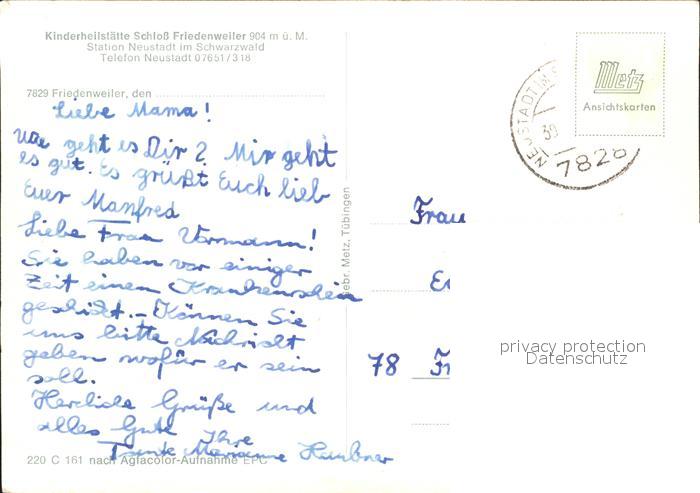 Kinderheilstätte Schloß Friedenweiler 904 m ü. M.
Station Neustadt im Schwarzwald
Telefon Neustadt 07651/318
7829 Friedenweiler, den
Liebe Mama!
Wie geht es Dir? Mir geht
es gut. Es grüßt Euch lieb
Euer Manfred
Liebe Frau Vormann!
Sie haben vor einiger
Zeit einen Krankenschein
geschickt. – Können Sie
uns bitte Nachricht
geben wofür er sein
soll.
Herzliche Grüße und
alles Gute Ihre
Tante Marianne
220 C 161 nach Agfacolor-Aufnahme EPC
ebr. Metz, Tübingen
Metz
Ansichtskarten
NEUSTADT
7828
Frau
78 Fr
privacy protection
Datenschutz